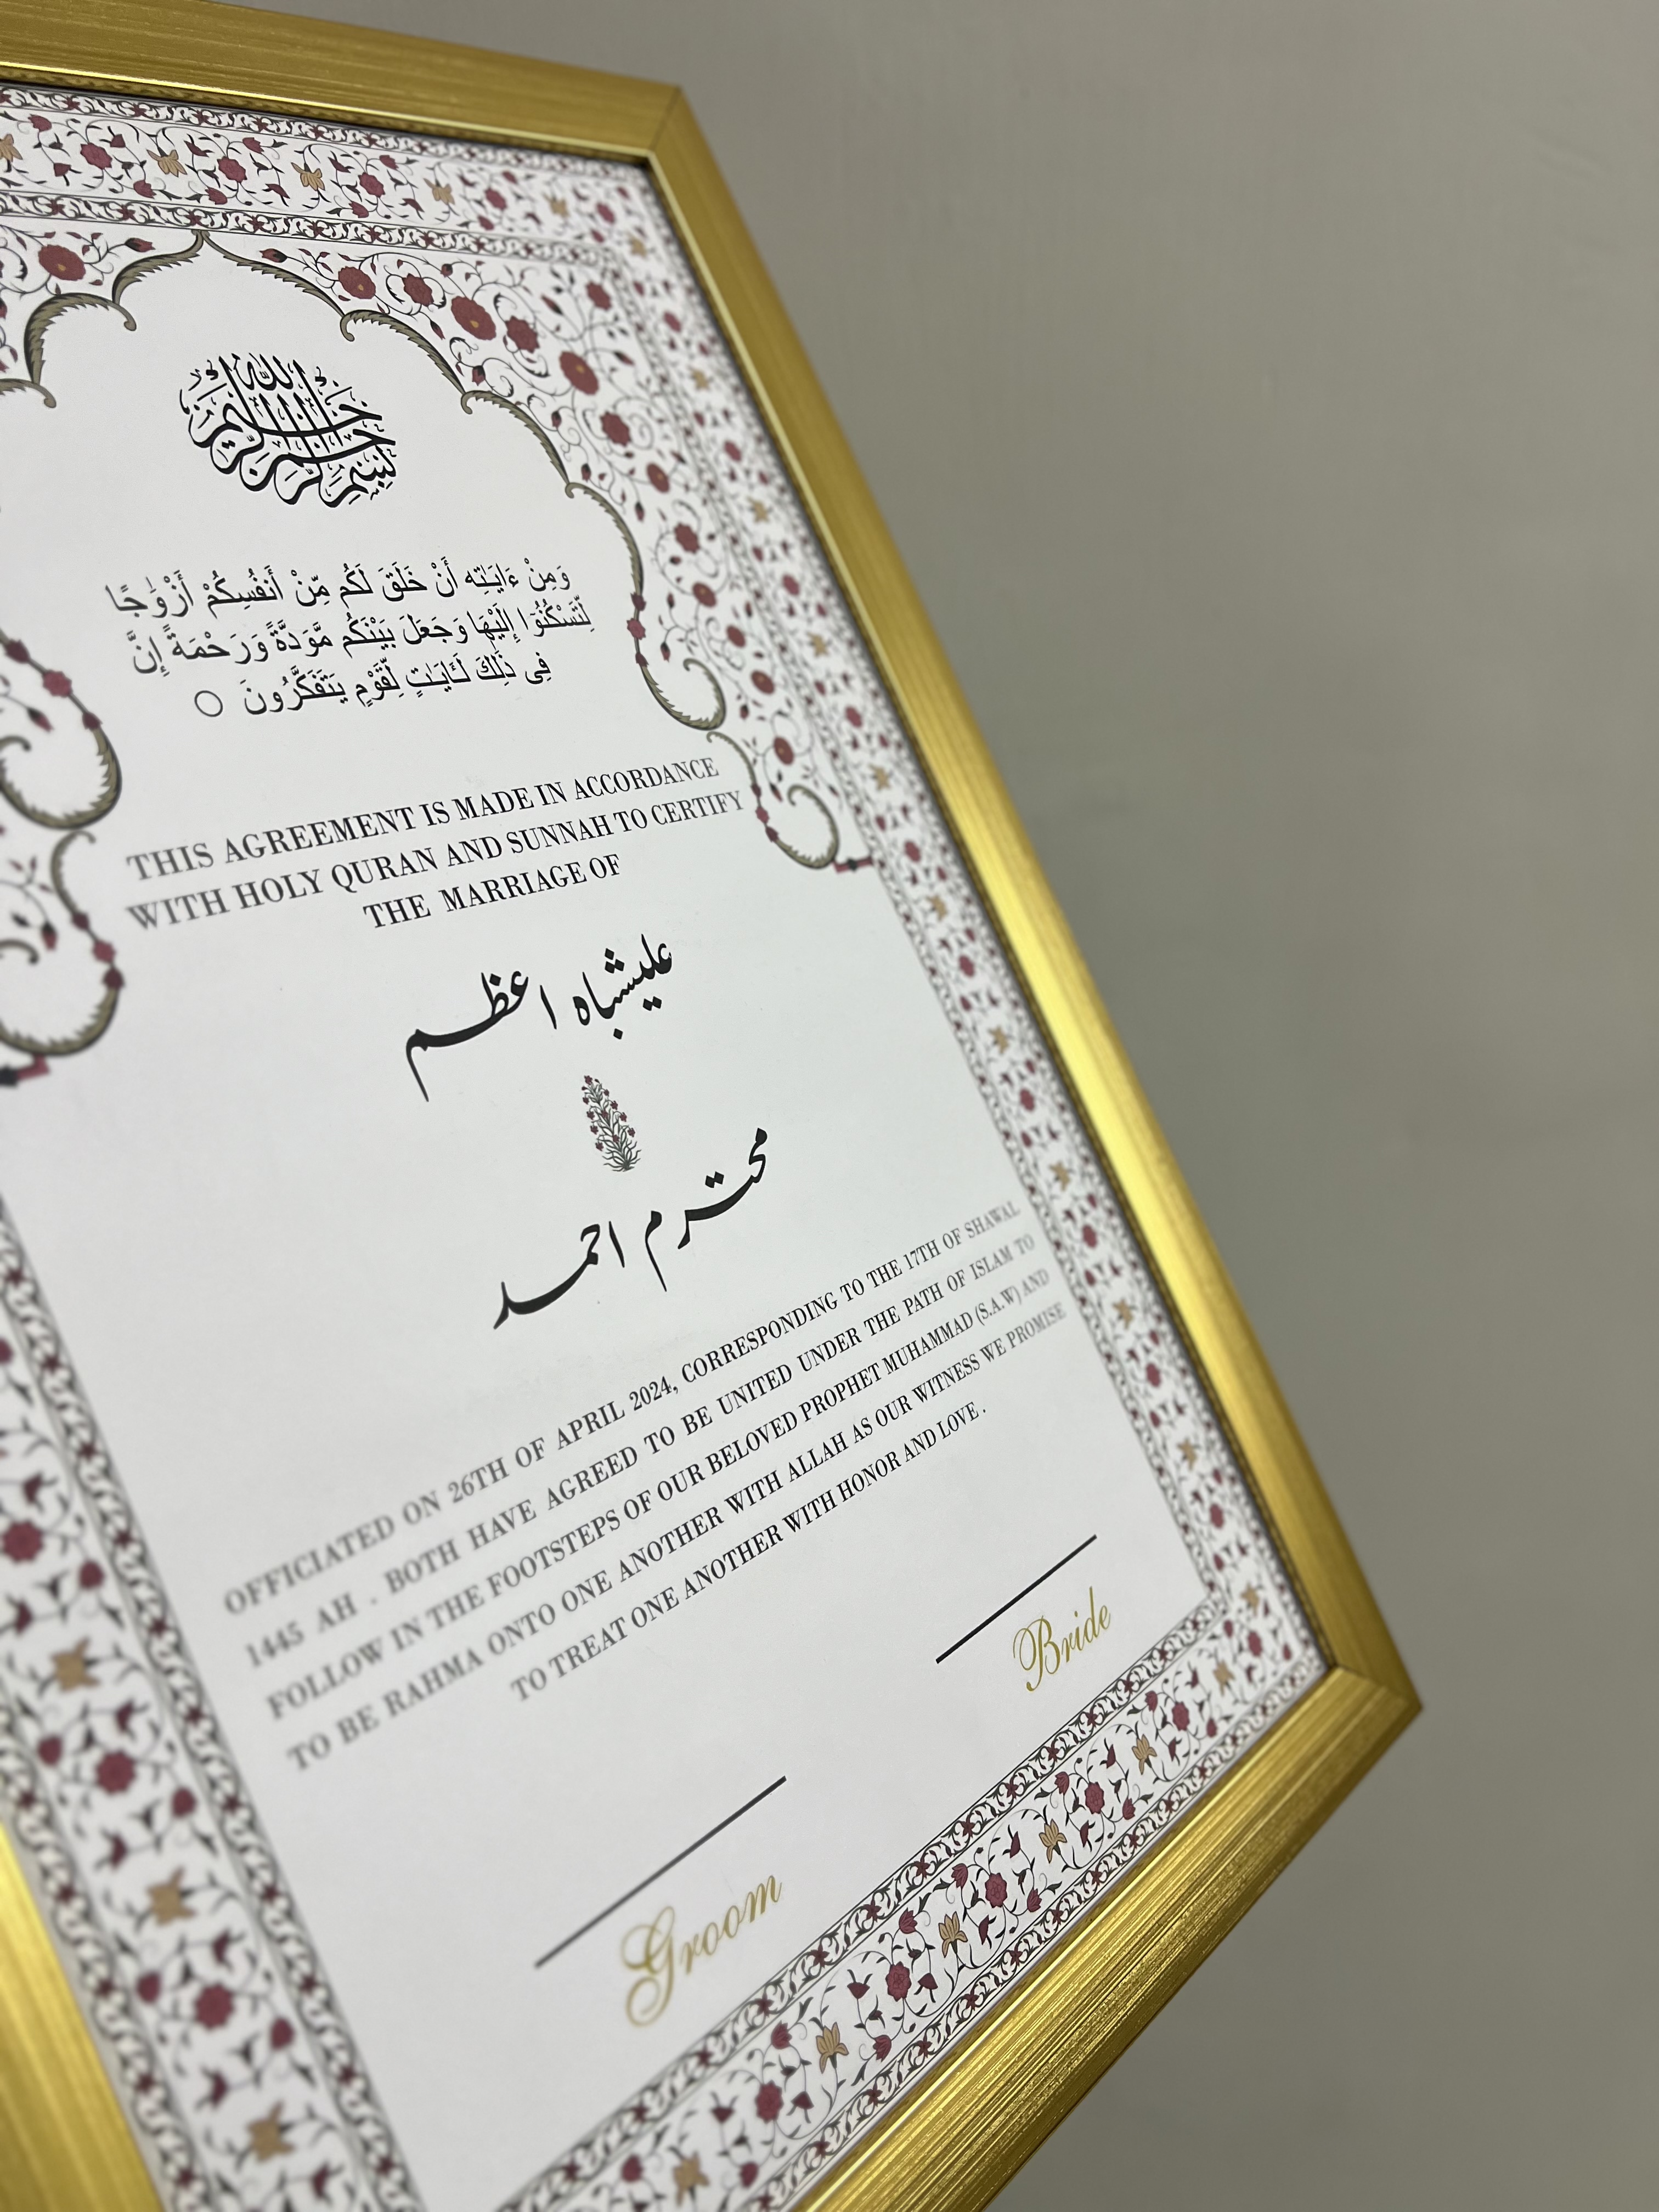 بسم الله الرحمن الرحيم
وَمِنْ ءَايَٰتِهِ أَنْ خَلَقَ لَكُم مِّنْ أَنفُسِكُمْ أَزْوَٰجًا
لِّتَسْكُنُوٓا۟ إِلَيْهَا وَجَعَلَ بَيْنَكُم مَّوَدَّةً وَرَحْمَةً إِنَّ
فِى ذَٰلِكَ لَـَٔايَـٰتٍ لِّقَوْمٍ يَتَفَكَّرُونَ
THIS AGREEMENT IS MADE IN ACCORDANCE
WITH HOLY QURAN AND SUNNAH TO CERTIFY
THE MARRIAGE OF
علیشباہ اعظم
محترم احمد
OFFICIATED ON 26TH OF APRIL 2024, CORRESPONDING TO THE 17TH OF SHAWAL
1445 AH . BOTH HAVE AGREED TO BE UNITED UNDER THE PATH OF ISLAM TO
FOLLOW IN THE FOOTSTEPS OF OUR BELOVED PROPHET MUHAMMAD (S.A.W) AND
TO BE RAHMA ONTO ONE ANOTHER WITH ALLAH AS OUR WITNESS WE PROMISE
TO TREAT ONE ANOTHER WITH HONOR AND LOVE .
Groom
Bride